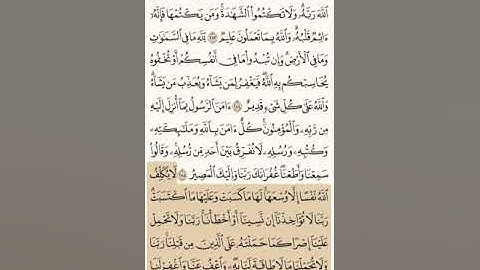 ٱللَّهَ رَبَّهُۥ وَلَا تَكْتُمُوا۟ ٱلشَّهَـٰدَةَ وَمَن يَكْتُمْهَا فَإِنَّهُۥٓ
ءَاثِمٌ قَلْبُهُۥ وَٱللَّهُ بِمَا تَعْمَلُونَ عَلِيمٌ ٢٨٣ لِّلَّهِ مَا فِى ٱلسَّمَـٰوَٰتِ
وَمَا فِى ٱلْأَرْضِ وَإِن تُبْدُوا۟ مَا فِىٓ أَنفُسِكُمْ أَوْ تُخْفُوهُ
يُحَاسِبْكُم بِهِ ٱللَّهُ فَيَغْفِرُ لِمَن يَشَآءُ وَيُعَذِّبُ مَن يَشَآءُ
وَٱللَّهُ عَلَىٰ كُلِّ شَىْءٍ قَدِيرٌ ٢٨٤ ءَامَنَ ٱلرَّسُولُ بِمَآ أُنزِلَ إِلَيْهِ
مِن رَّبِّهِۦ وَٱلْمُؤْمِنُونَ كُلٌّ ءَامَنَ بِٱللَّهِ وَمَلَـٰٓئِكَتِهِۦ
وَكُتُبِهِۦ وَرُسُلِهِۦ لَا نُفَرِّقُ بَيْنَ أَحَدٍ مِّن رُّسُلِهِۦ وَقَالُوا۟
سَمِعْنَا وَأَطَعْنَا غُفْرَانَكَ رَبَّنَا وَإِلَيْكَ ٱلْمَصِيرُ ٢٨٥ لَا يُكَلِّفُ
ٱللَّهُ نَفْسًا إِلَّا وُسْعَهَا لَهَا مَا كَسَبَتْ وَعَلَيْهَا مَا ٱكْتَسَبَتْ
رَبَّنَا لَا تُؤَاخِذْنَآ إِن نَّسِينَآ أَوْ أَخْطَأْنَا رَبَّنَا وَلَا تَحْمِلْ
عَلَيْنَآ إِصْرًا كَمَا حَمَلْتَهُۥ عَلَى ٱلَّذِينَ مِن قَبْلِنَا رَبَّنَا
وَلَا تُحَمِّلْنَا مَا لَا طَاقَةَ لَنَا بِهِۦ وَٱعْفُ عَنَّا وَٱغْفِرْ لَنَا